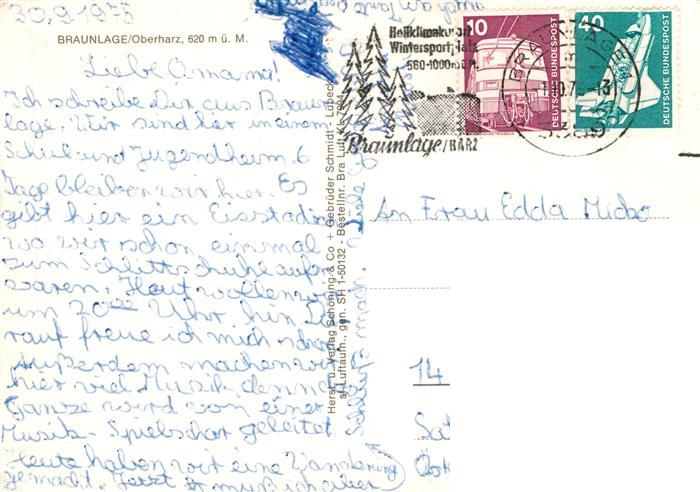 30.9.1975
BRAUNLAGE/Oberharz, 620 m ü. M.
Liebe Omama!
Ich schreibe Dir aus Braun
lage. Wir sind hier in einem
Schul und Jugendheim. 6
Tage bleiben wir hier. Es
gibt hier ein Eisstadion
wo wir schon einmal
zum Schlittschuhlaufen
waren. Heut wollen wir
um 20.00 Uhr hin. Da
rauf freue ich mich schon.
Außerdem machen wir
hier viel Musik denn das
Ganze wird von einer
Musik-Spielschar geleitet.
Heute haben wir eine Wanderung
gemacht. Jetzt muß ich aber
Schluß mach. Liebe
und
Herst. u. Verlag Schöning & Co + Gebrüder Schmidt - Lübeck
sf Luftaufn., gen. SH 1-50132 - Bestellnr. Bra Luft
Heilklimakurort
Wintersportplatz
560-1000 m ü. M.
Braunlage/HARZ
10
DEUTSCHE BUNDESPOST
40
DEUTSCHE BUNDESPOST
BRAUNLAGE
An Frau Edda
14